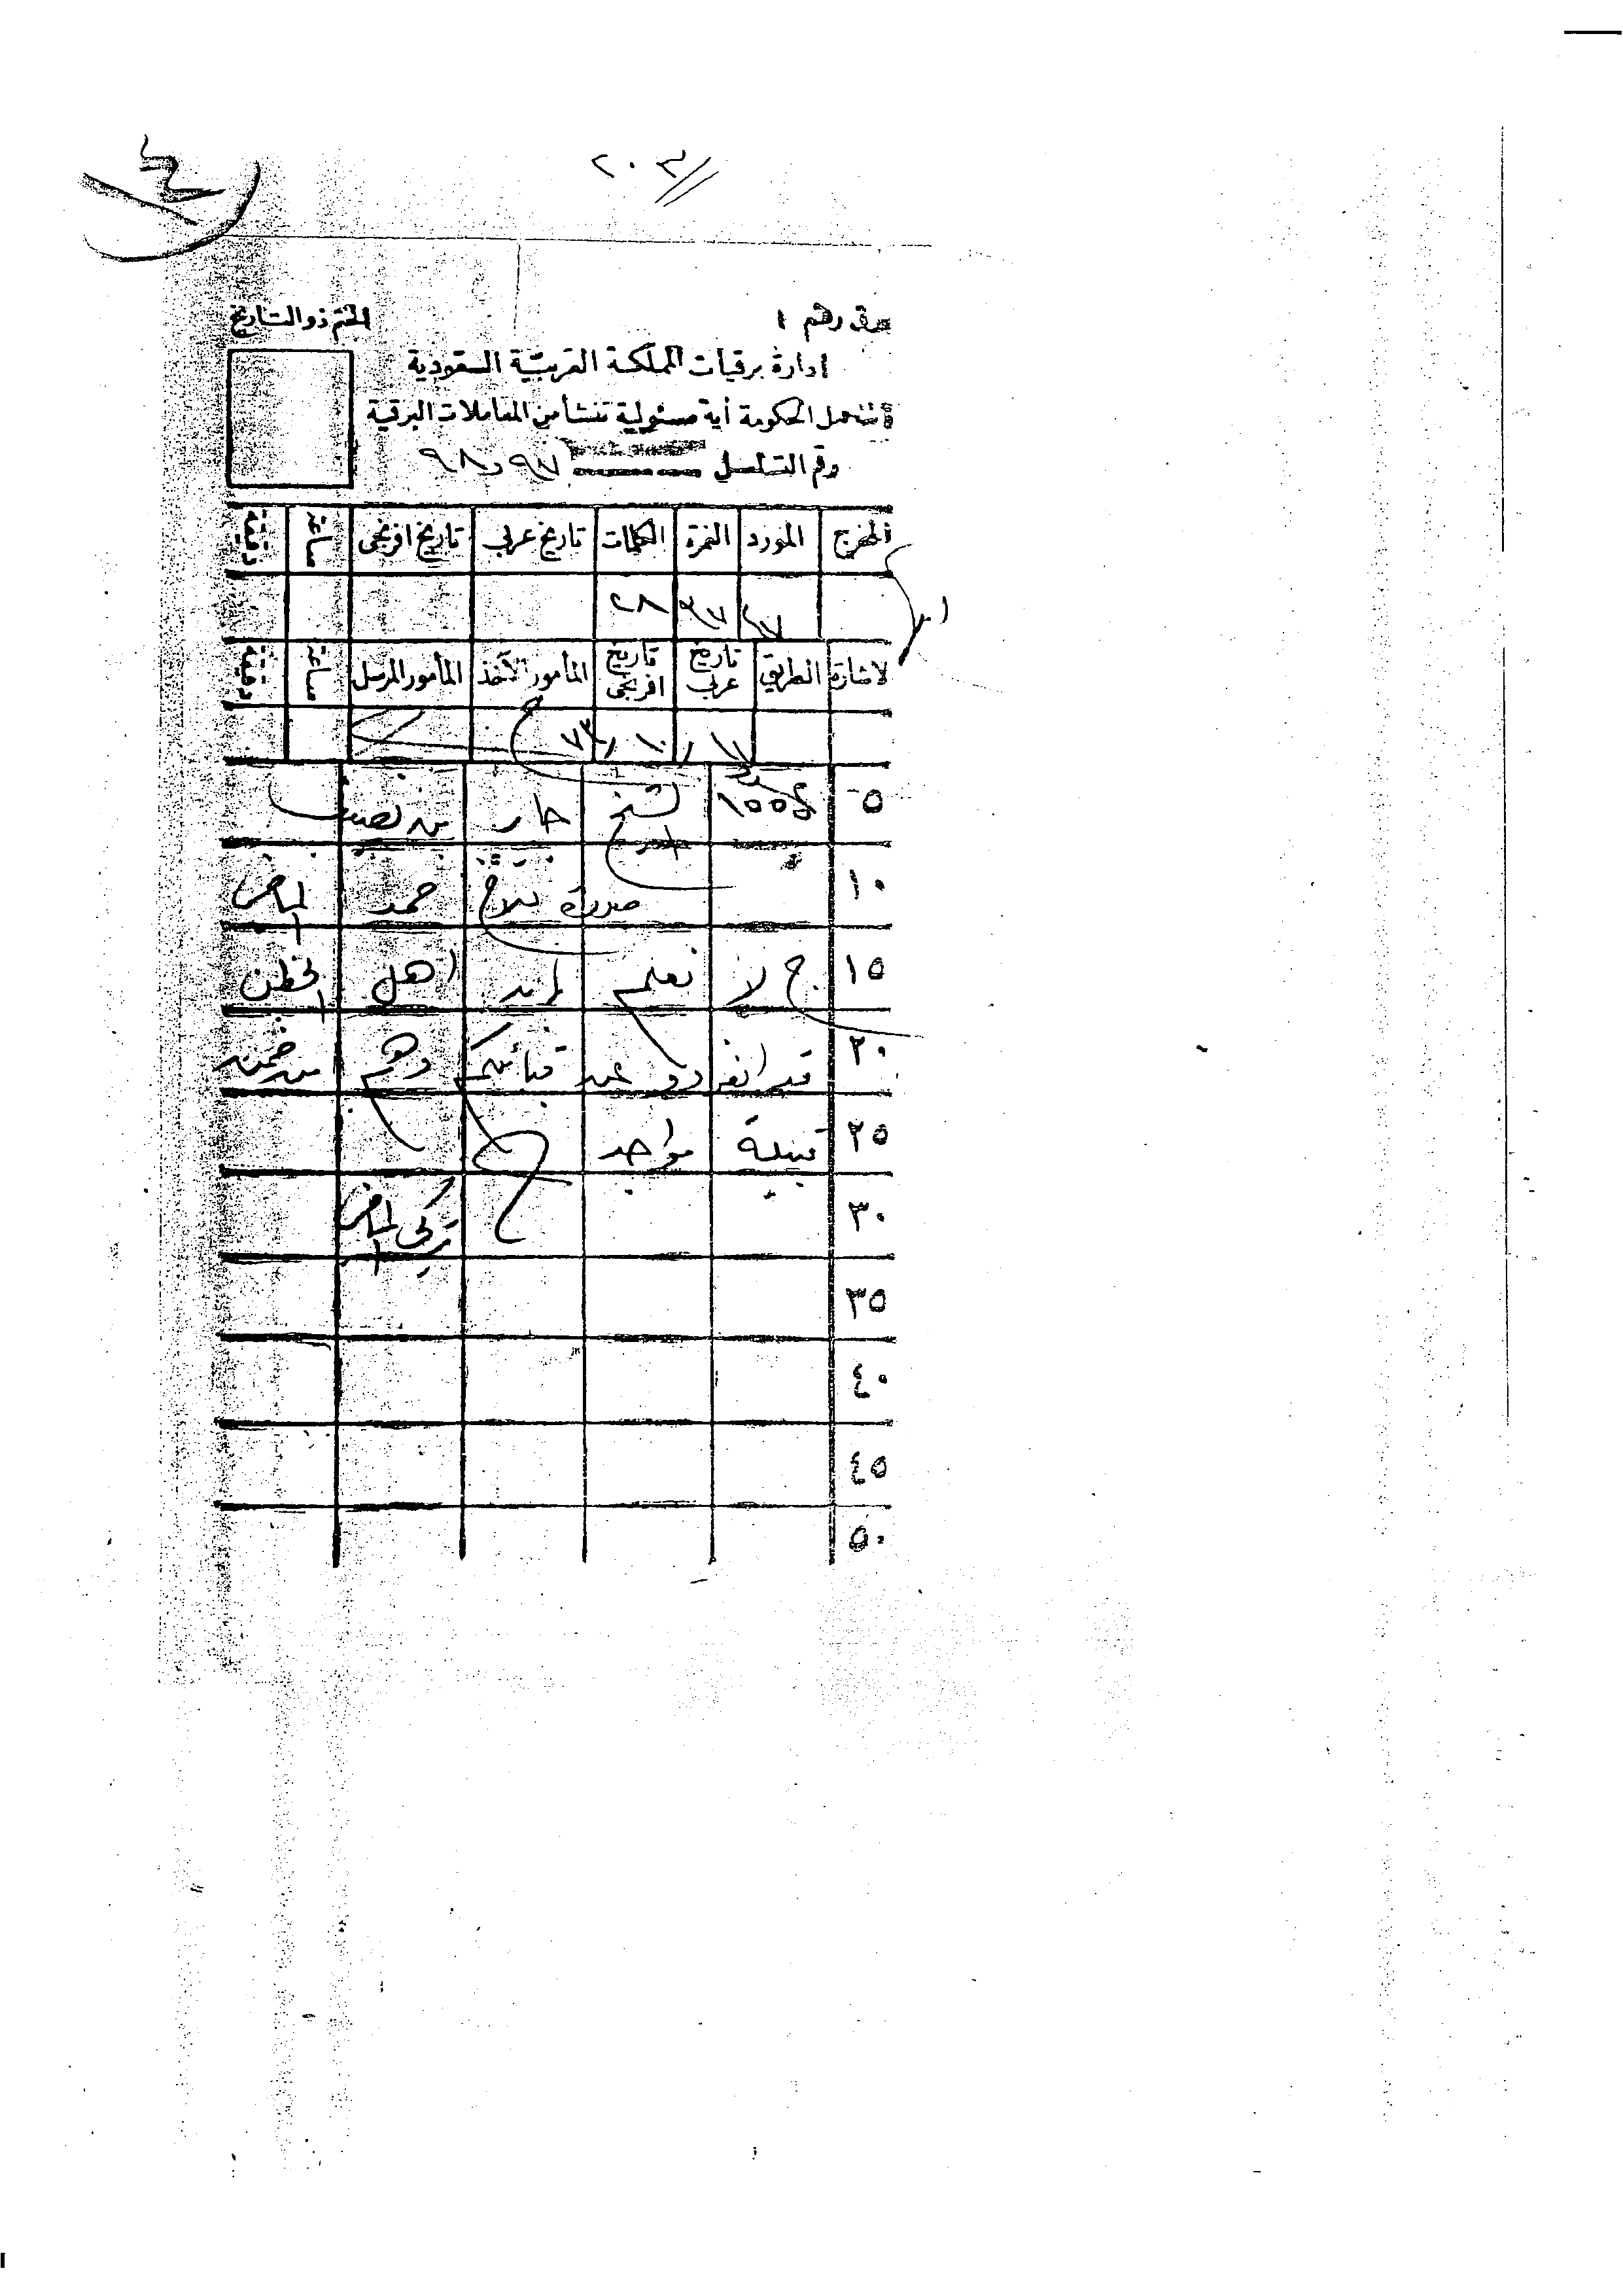 ٢٠٣
برق رقم ١
الختم ذو التاريخ
إدارة برقيات المملكة العربية السعودية
لا تتحمل الحكومة أية مسئولية تنشأ من المعاملات البرقية
رقم التسلسل ٩٧ و ٩٨
المخرج المورد النمرة الكلمات تاريخ عربي تاريخ افرنجى ساعة دقيقة
٢٧ ٩٧ ٢٨
الاشارة الطريق تاريخ عربي تاريخ افرنجى المأمور الآخذ المأمور المرسل ساعة دقيقة
١٧ / ١٠ / ٧٣
٥ الشيخ جابر بن نصيب
١٠ صورة حمد الماضي
١٥ ج لا نعلم إن اهل الخطن
٢٠ قد انفردو عن قبائلكم وهم من ضمن
٢٥ قبيلة مواجد
٣٠ تركي الماضي
٣٥
٤٠
٤٥
٥٠